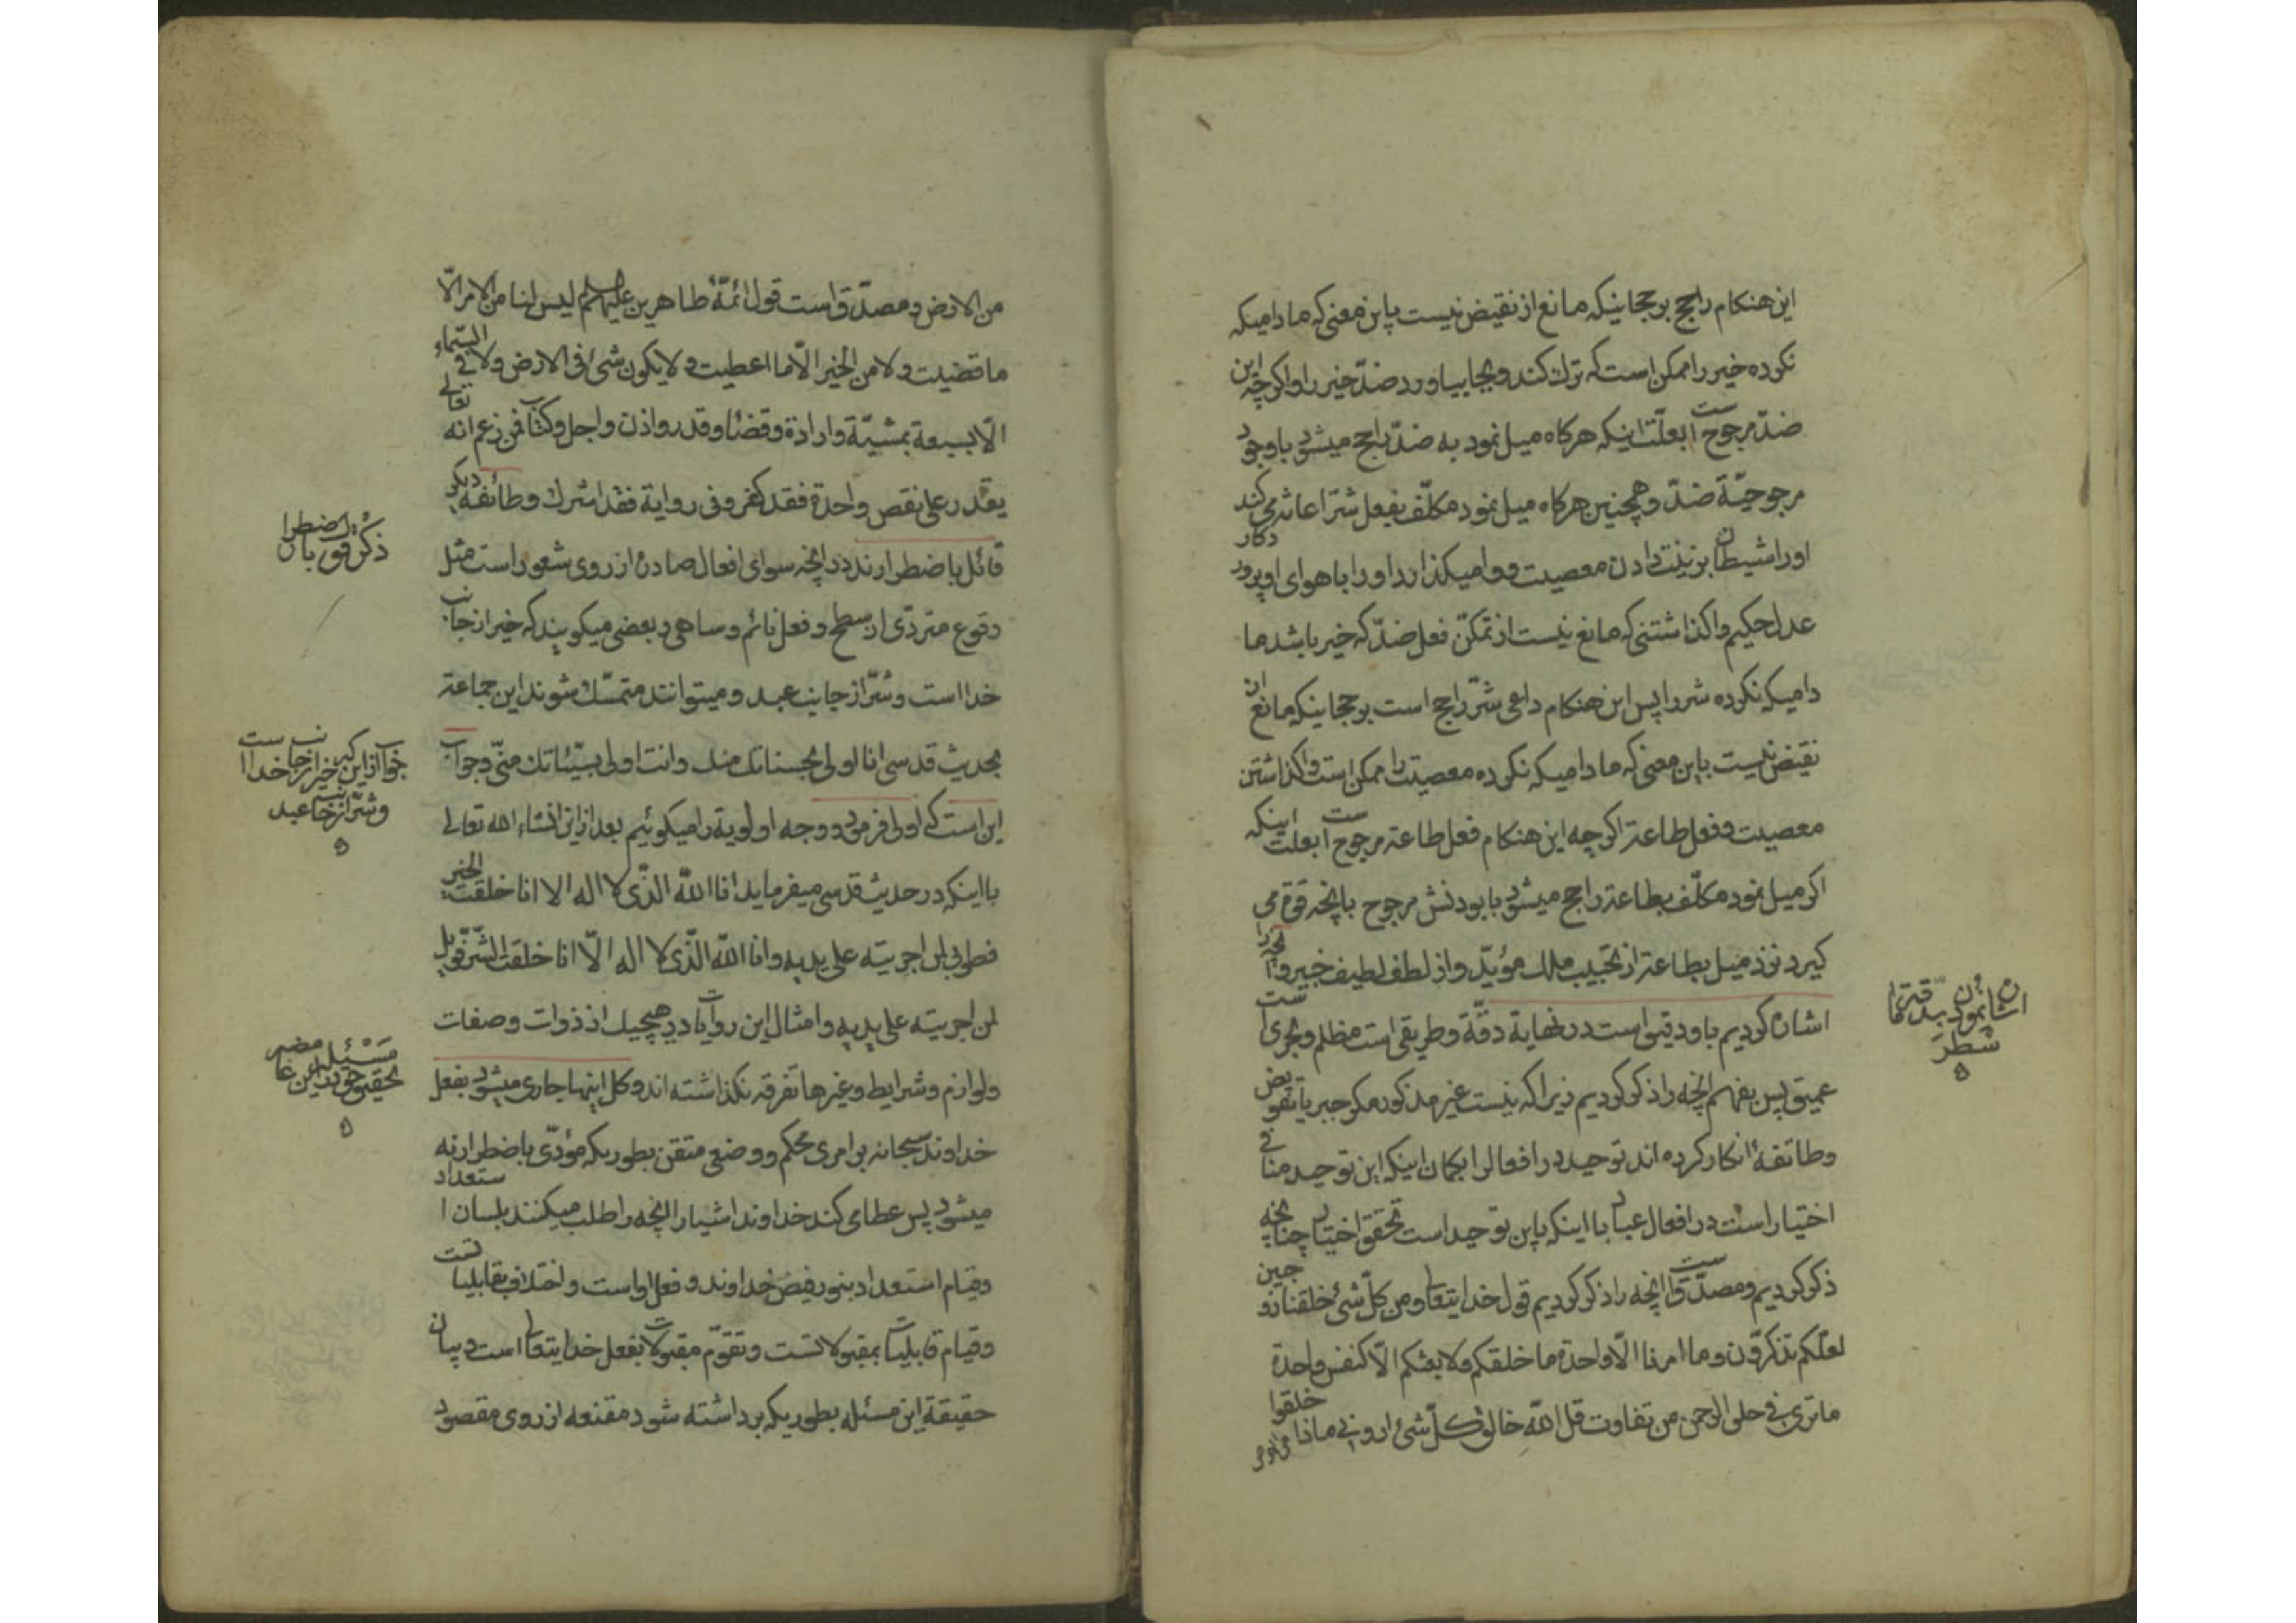 این هنکام راجح برججانیکه مانع از نقیض نیست باین معنی که مادامیکه
نکرده خیر را ممکن است که ترک کند و بجا بیاورد ضدّ خیر را و اکرچه این
ضدّ مرجوح است بعلّت اینکه هرکاه میل نمود به ضدّ راجح میشود با وجود
مرجوحیّة ضدّ و همچنین هرکاه میل نمود مکلّف بفعل شرّ اعانتمی کند
اورا شیطان بزینت دادن معصیت و وامیکذارد او را با هوای او پرورد کار
عدل حکیم واکذاشتنی که مانع نیست از تمکّن فعل ضدّ که خیر باشد ما
دامیکه نکرده شر را پس این هنکام داعی شرّ راجح است برججانیکه مانع از
نقیض نیست باین معنی که مادامیکه نکرده معصیت را ممکن است واکذاشتن
معصیت و فعل طاعة اکرچه این هنکام فعل طاعة مرجوح است بعلّت اینکه
اکر میل نمود مکلّف بطاعة راجح میشود با بودنش مرجوح بانچه قوّة می
کیرد نزد میل بطاعة از تحبیب ملک مؤیّد و از لطف لطیف خبیر و آنچه را
اشاره کردیم باو دقیق است در نهایة دقّة و طریقی است مظلم و بحری است
عمیق پس بفهم انچه را ذکر کردیم زیرا که نیست غیر مذکور مکر جبر یا تفویض
و طائفهٔ انکار کرده اند توحید در افعال را بکمان اینکه این توحید منافی
اختیار است در افعال عباد با اینکه باین توحید است تحقق اختیار چنانچه
ذکر کردیم و مصدّق است انچه را ذکر کردیم قول خدایتعالی و من کلّ شئ خلقنا زوجین
لعلّکم تذکّرون و ما امرنا الّا واحدة ما خلقکم ولا بعثکم الّا کنفس واحدة
ما تری فی خلق الرحمن من تفاوت قل اللّه خالق کلّ شئ ارونی ماذا خلقوا
اشاره نمودن بدقّة
من الارض و مصدّق است قول ائمّهٔ طاهرین علیهم السلم لیس لنا من الامر الّا
ما قضیت ولا من الخیر الّا ما اعطیت و لا یکون شئ فی الارض ولا فی السّماء
الّا بسبعة بمشیّة و ارادة و قضا و قدر و اذن و اجل و کتاب فمن زعم انه تعالی
یقدر علی نقص واحدة فقد کفر و فی روایة فقد اشرک و طائفهٔ دیکر
قائل باضطرارند در انچه سوای افعال صادره از روی شعور است مثل
وقوع متردّی از سطح و فعل نائم و ساهی و بعضی میکویند که خیر از جانب
خدا است و شرّ از جانب عبد و میتوانند متمسّک شوند این جماعة
بحدیث قدسی انا اولی بحسناتک منک و انت اولی بسیّئاتک منّی و جواب
این است که اولی فرمود و وجه اولویة را میکوئیم بعد از این انشاء الله تعالی
با اینکه در حدیث قدسی میفرماید انا اللّه الذّی لا اله الا انا خلقت الخیر
فطوبی لمن اجریته علی یدیه و انا اللّه الذّی لا اله الّا انا خلقت الشّر فویل
لمن اجریته علی یدیه و امثال این روایات در هیچیک از ذوات و صفات
و لوازم و شرایط و غیرها تفرقه نکذاشته اند و کل اینها جاری میشود بفعل
خداوند سبحانه بر امری محکم و وضعی متقن بطوریکه مؤدّی باضطرار نه
میشود پس عطا می کند خداوند اشیا را انچه را طلب میکنند بلسان استعداد
و قیام استعداد بنور فیض خداوند و فعل او است و اختلاف بقابلیاتست
و قیام قابلیات بمقبولاتست و تقوّم مقبولات بفعل خدایتعالی است و بیان
حقیقة این مسئله بطوریکه برداشته شود مقنعه از روی مقصود
ذکر قول باضطرار
جواب از این که خیر از جانب خدا است
و شرّ از جانب عبد